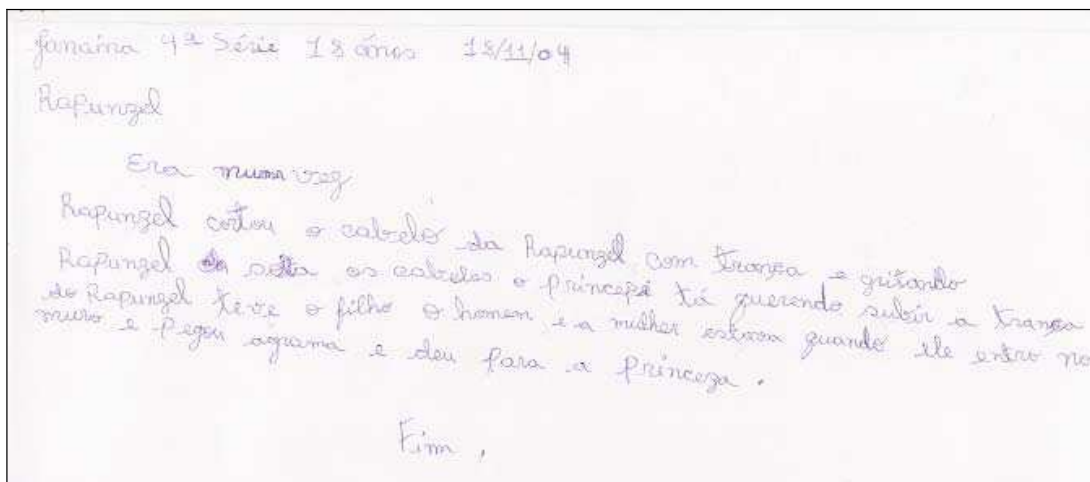 Janaína 4ª Série 18 anos 18/11/04
Rapunzel
Era numa vez
Rapunzel cortou o cabelo da Rapunzel com trança e gritando
Rapunzel os cabelos o princepe tá querendo subir a trança
do Rapunzel teve o filho o homen e a mulher estava quando ele entro no
muro e pegou agrama e deu para a princeza.
Fim,